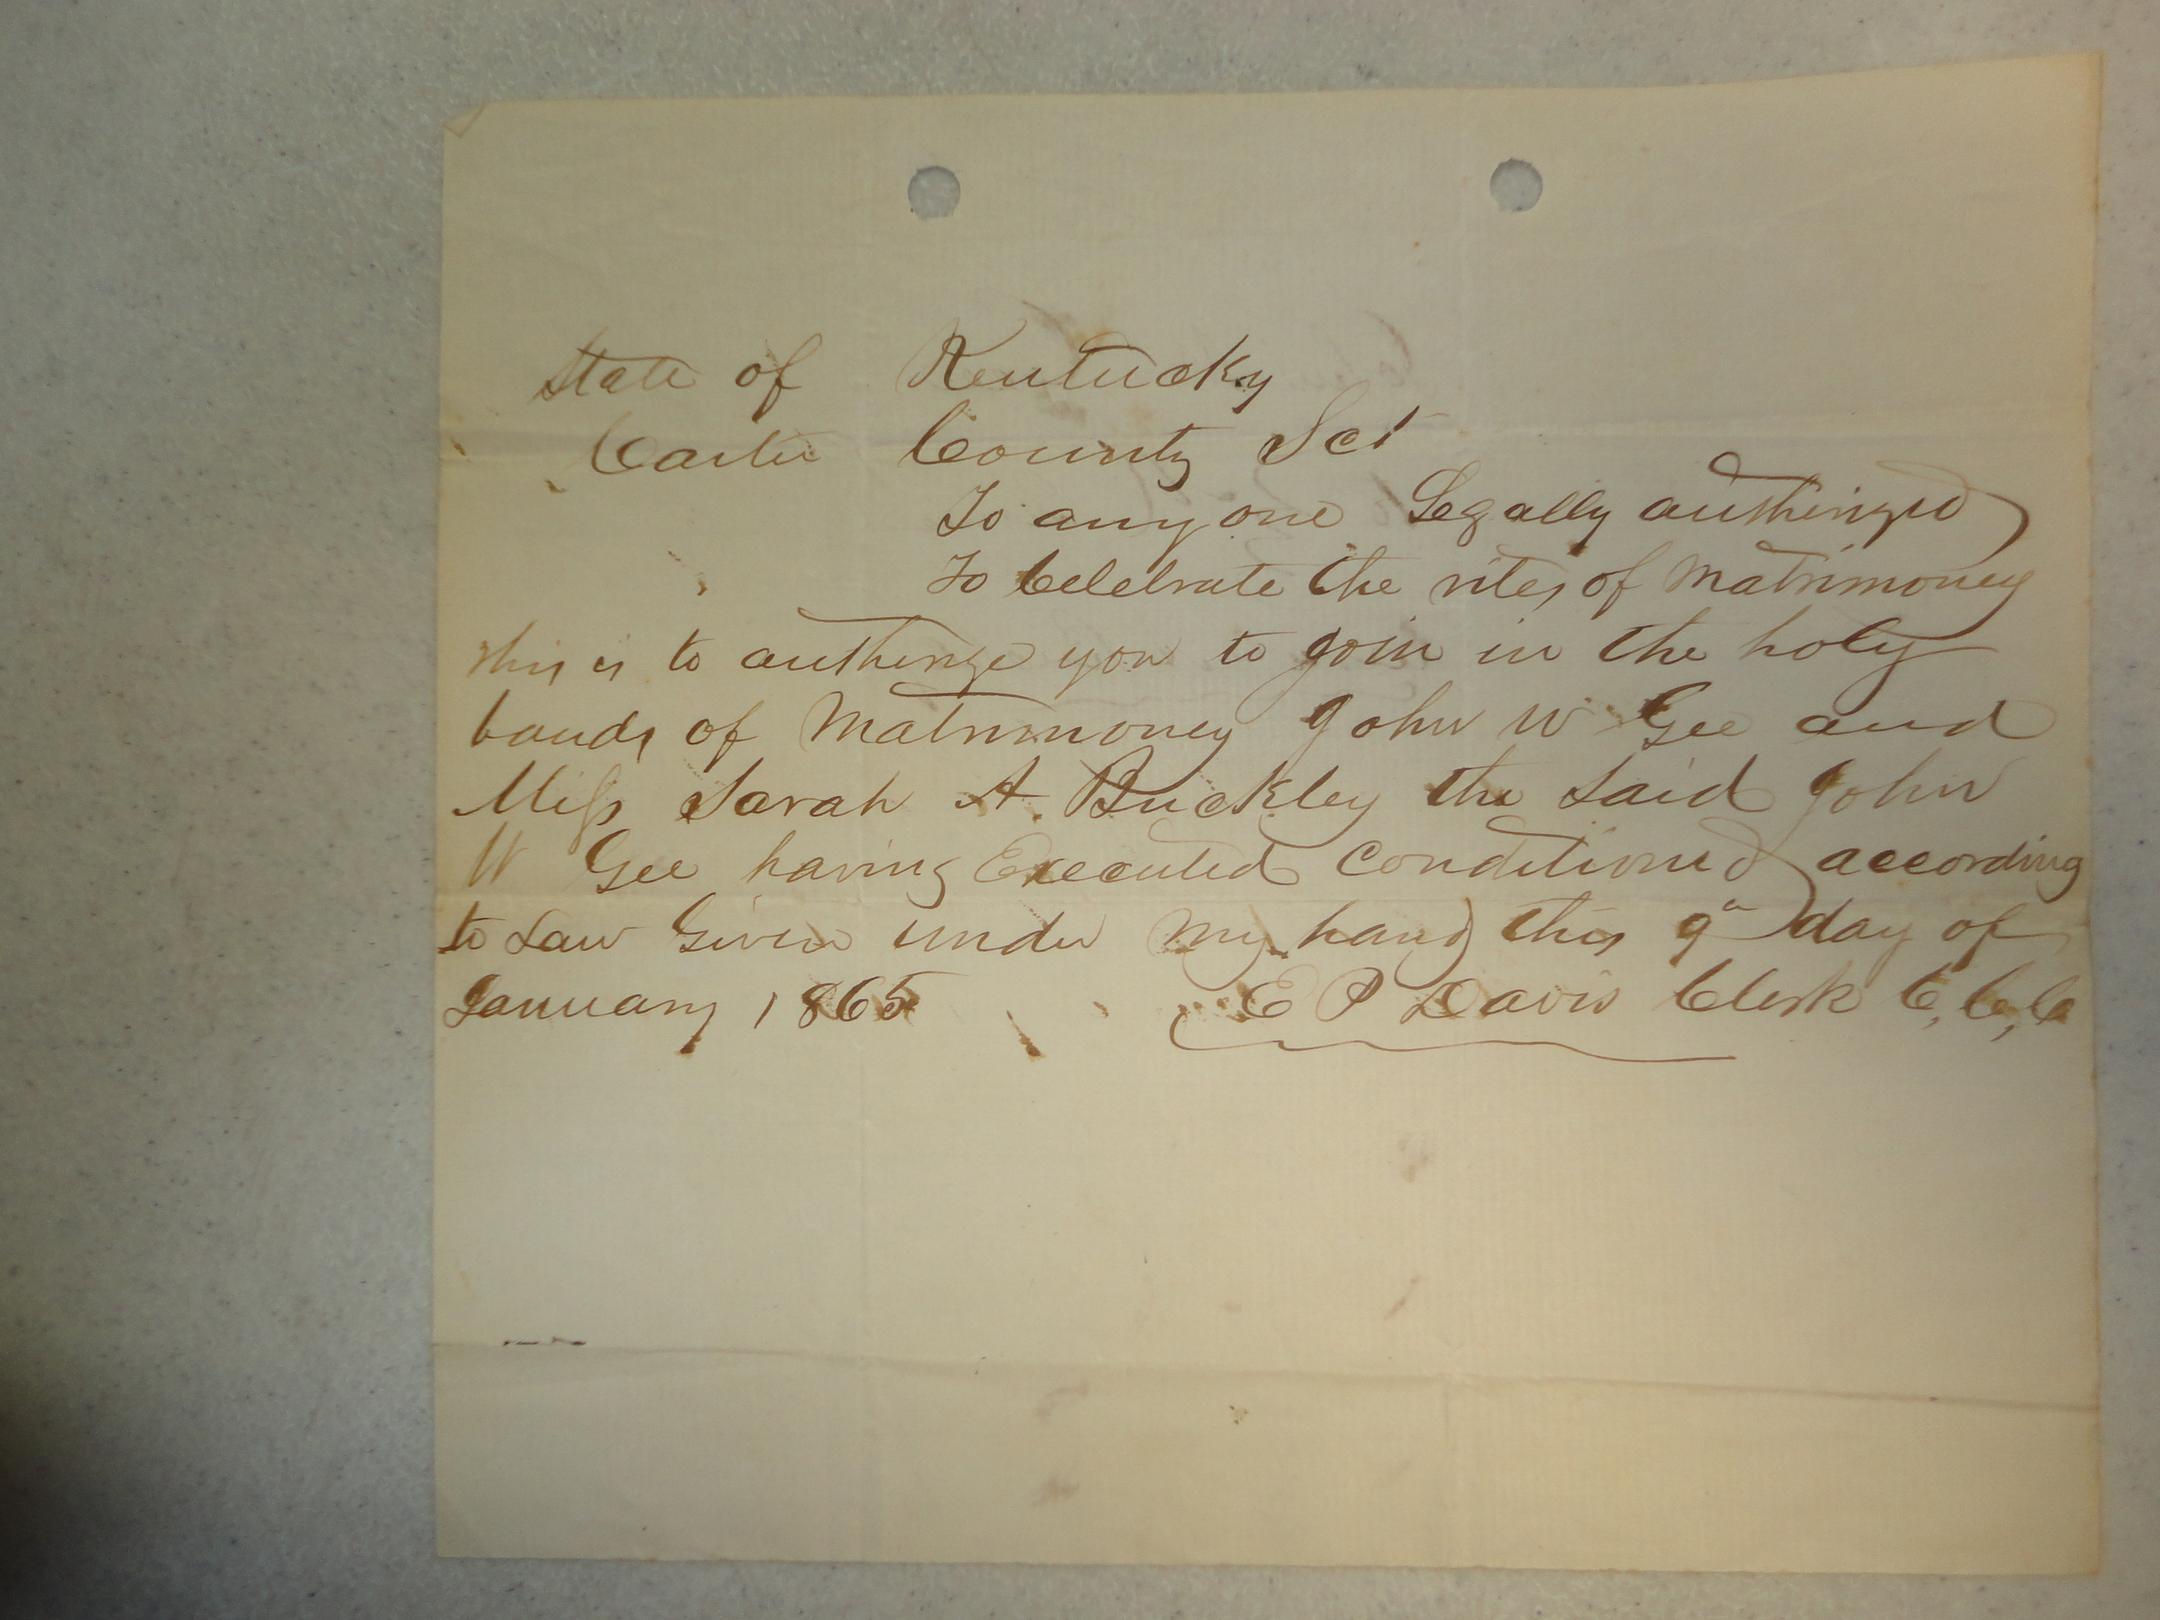 State of Kentucky
Carter County Sct
To any one Legally authorized
To Celebrate the rites of Matrimoney
this is to authorize you to join in the holy
bands of Matrimoney John W Gee and
Miss Sarah A. Buckley the said John
W Gee having Executed Conditioned according
to Law Given under my hand this 9th day of
January 1865 E P Davis Clerk C, C, C